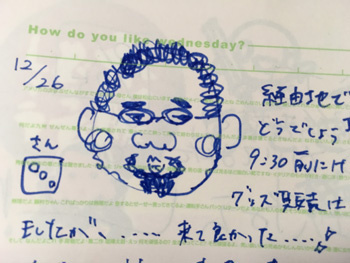 How do you like wednesday?
12/26
経由地で
どうでしょう
さん
9:30前に
グッズ
ましたが、..... 来て良かった.....♪